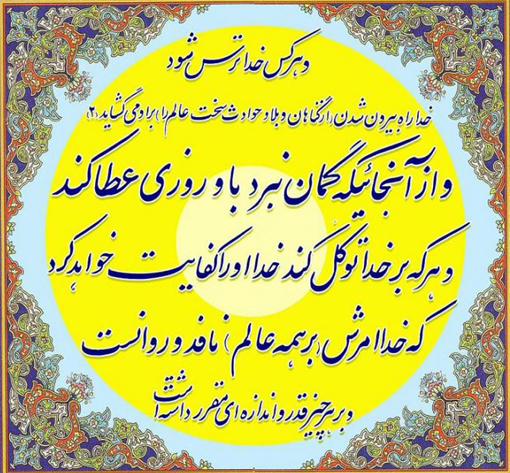 و هر کس خدا ترس شود
خدا راه بیرون شدن (از گناهان و بلا و حوادث سخت عالم را) بر او می گشاید (۲)
و از آنجائیکه گمان نبرد باو روزی عطا کند
و هر که بر خدا توکل کند خدا او را کفایت خواهد کرد
که خدا امرش (بر همه عالم) نافد و روانست
و بر هر چیز قدر و اندازه ای مقرر داشته است